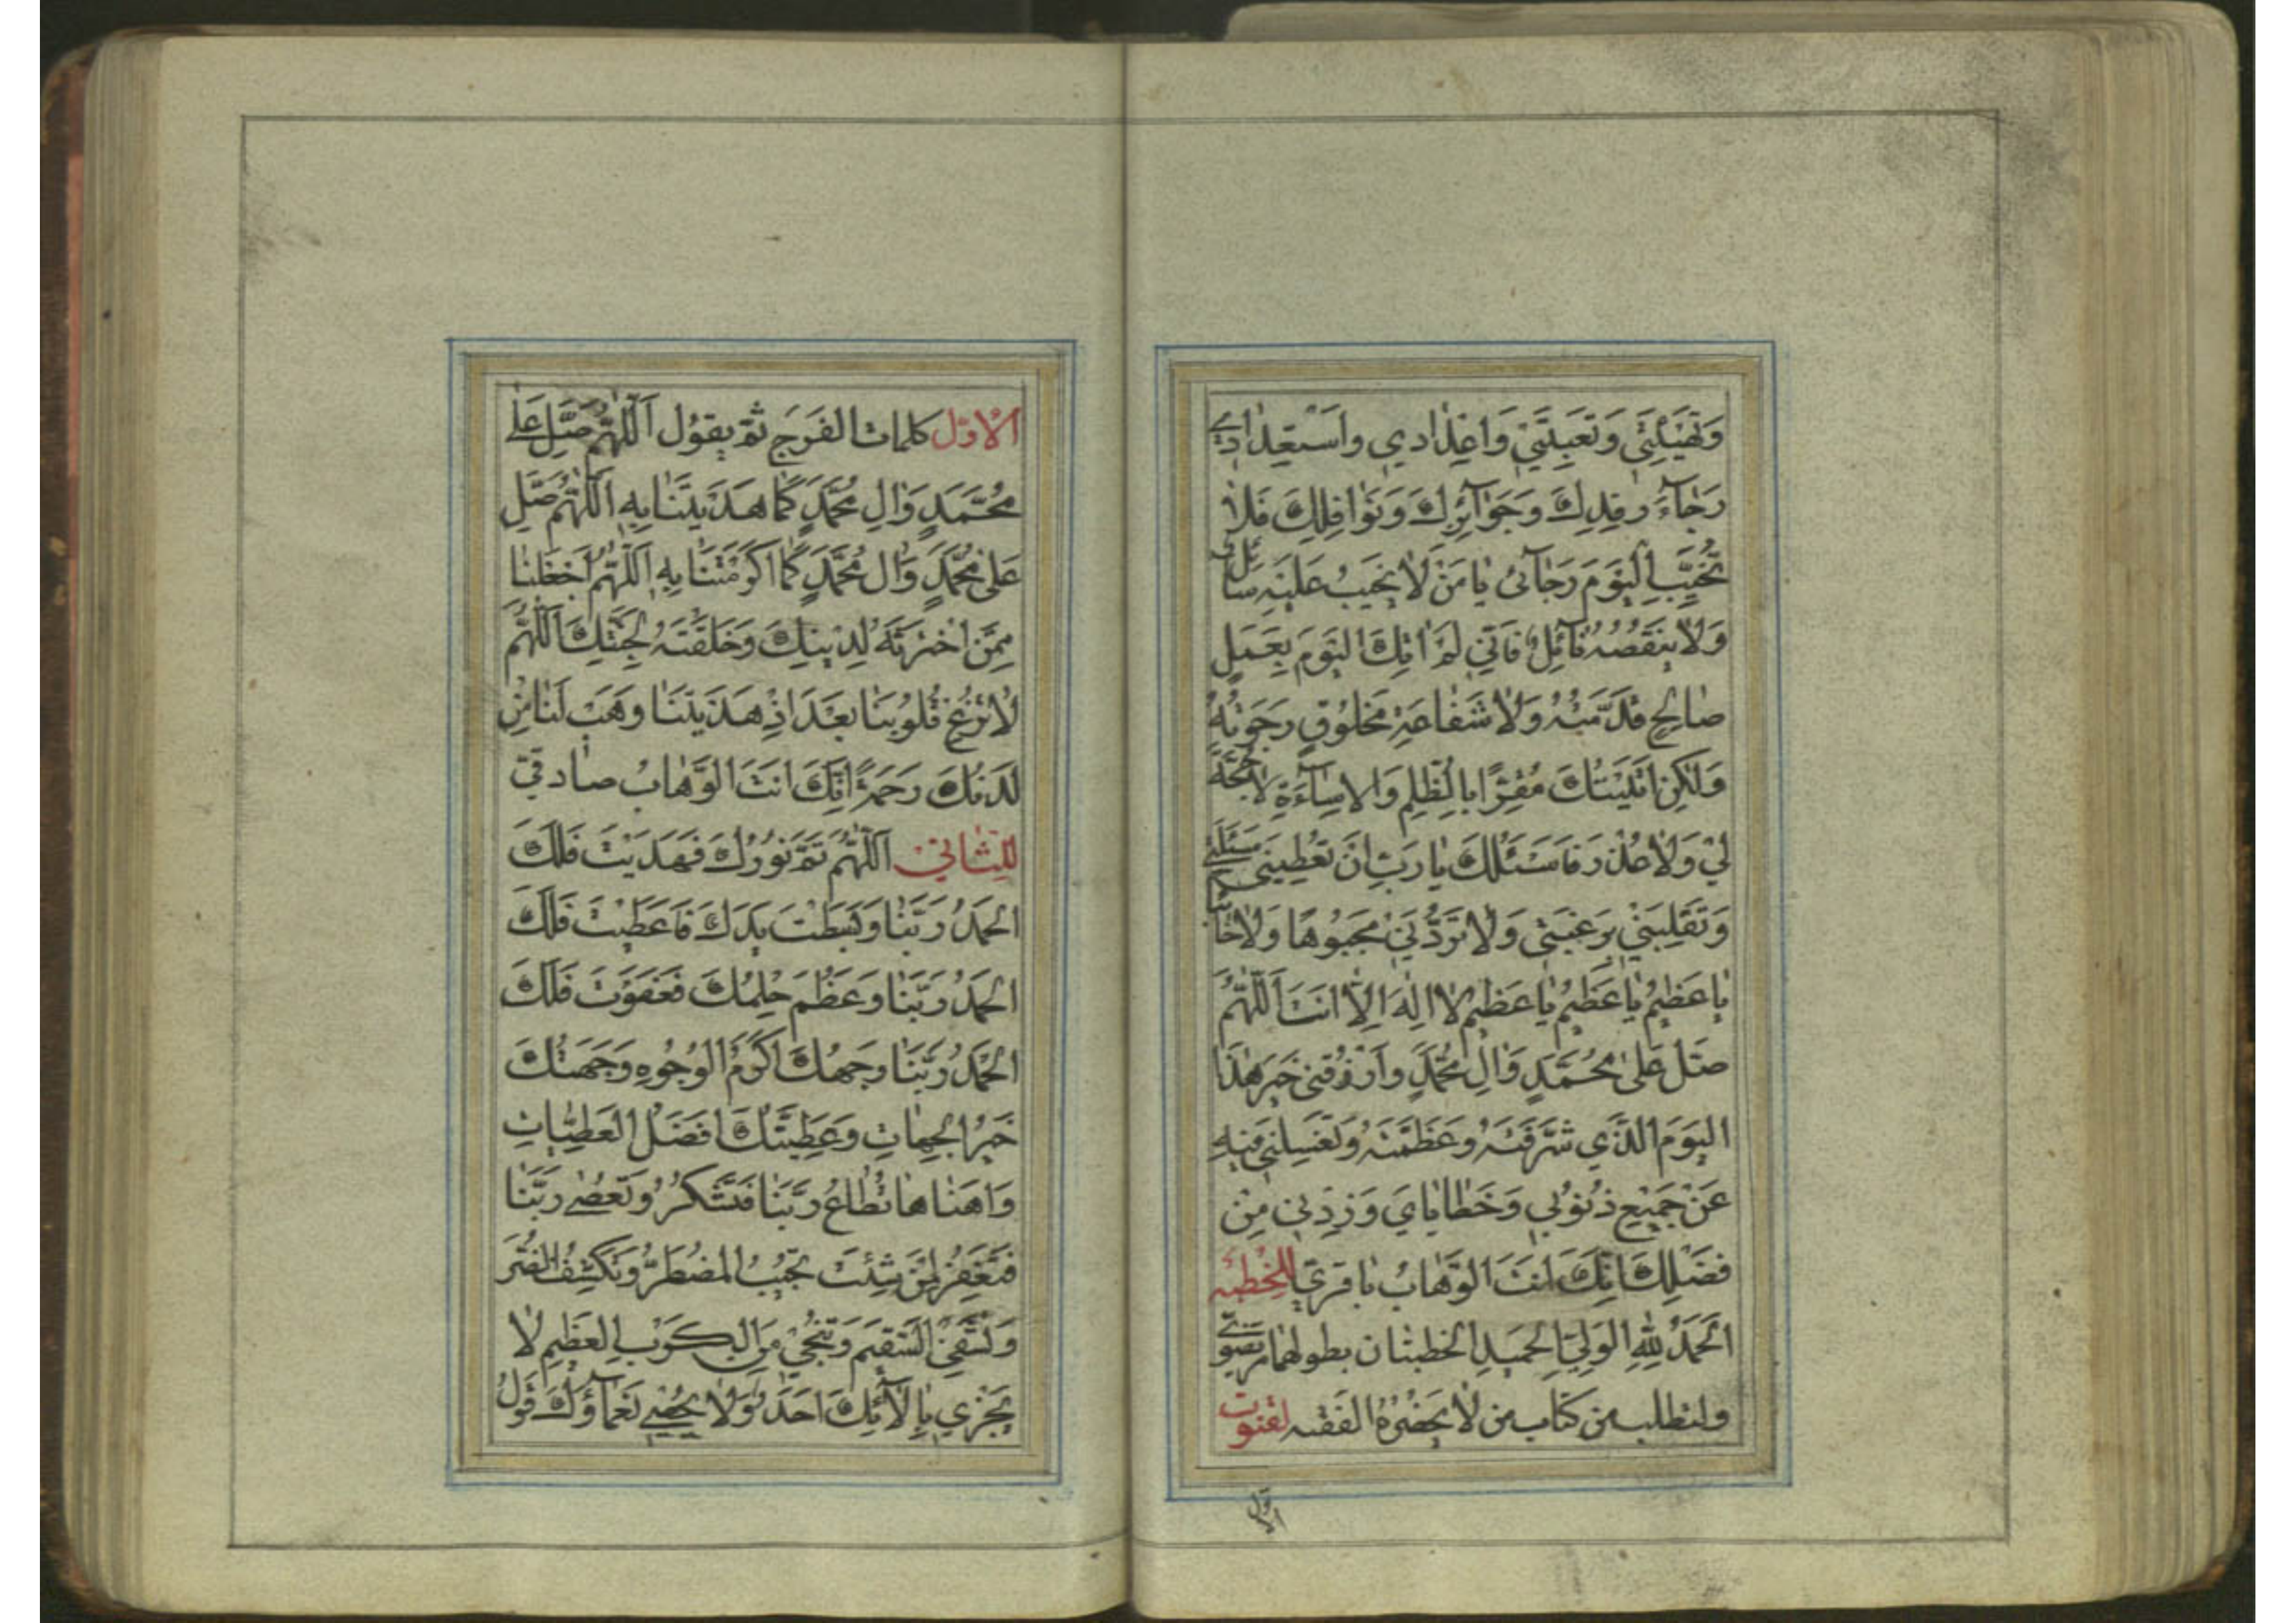 وَتَهْيِئَتِي وَتَعْبِيَتِي وَاعْدَادِي وَاسْتِعْدَادِي
رَجَآءَ رِفْدِكَ وَجَوَآئِزِكَ وَنَوَافِلِكَ فَلَا
تُخَيِّبِ الْيَوْمَ رَجَآئِي يَا مَنْ لَا يَخِيبُ عَلَيْهِ سَائِلٌ
وَلَا يَنْقُصُهُ نَآئِلٌ فَاِنِّي لَمْ اٰتِكَ الْيَوْمَ بِعَمَلٍ
صَالِحٍ قَدَّمْتُهُ وَلَا شَفَاعَةِ مَخْلُوقٍ رَجَوْتُهُ
وَلٰكِنْ اَتَيْتُكَ مُقِرًّا بِالظُّلْمِ وَالْاِسَآءَةِ لَا حُجَّةَ
لِي وَلَا عُذْرَ فَاَسْئَلُكَ يَا رَبِّ اَنْ تُعْطِيَنِي مَسْئَلَتِي
وَتَقْلِبَنِي بِرَغْبَتِي وَلَا تَرُدَّنِي مَجْبُوهًا وَلَا خَائِبًا
يَا عَظِيمُ يَا عَظِيمُ يَا عَظِيمُ لَا اِلٰهَ اِلَّا اَنْتَ اَللّٰهُمَّ
صَلِّ عَلىٰ مُحَمَّدٍ وَاٰلِ مُحَمَّدٍ وَارْزُقْنِي خَيْرَ هٰذَا
الْيَوْمِ الَّذِي شَرَّفْتَهُ وَعَظَّمْتَهُ وَتَغْسِلَنِي فِيهِ
عَنْ جَمِيعِ ذُنُوبِي وَخَطَايَايَ وَزِدْنِي مِنْ
فَضْلِكَ اِنَّكَ اَنْتَ الْوَهَّابُ باقري للخطبه
اَلْحَمْدُ لِلّٰهِ الْوَلِيِّ الْحَمِيدِ الخطبتان بطولهما مرتضوي
ولتطلب من كتاب من لا يحضره الفقيه لقنوت
الاول
الاول كلمات الفرج ثم يقول اَللّٰهُمَّ صَلِّ عَلىٰ
مُحَمَّدٍ وَاٰلِ مُحَمَّدٍ كَمَا هَدَيْتَنَا بِهِ اَللّٰهُمَّ صَلِّ
عَلىٰ مُحَمَّدٍ وَاٰلِ مُحَمَّدٍ كَمَا اَكْرَمْتَنَا بِهِ اَللّٰهُمَّ اجْعَلْنَا
مِمَّنِ اخْتَرْتَهُ لِدِينِكَ وَخَلَقْتَهُ لِجَنَّتِكَ اَللّٰهُمَّ
لَا تُزِغْ قُلُوبَنَا بَعْدَ اِذْ هَدَيْتَنَا وَهَبْ لَنَا مِنْ
لَدُنْكَ رَحْمَةً اِنَّكَ اَنْتَ الْوَهَّابُ صادقي
للثاني اَللّٰهُمَّ تَمَّ نُورُكَ فَهَدَيْتَ فَلَكَ
الْحَمْدُ رَبَّنَا وَبَسَطْتَ يَدَكَ فَاَعْطَيْتَ فَلَكَ
الْحَمْدُ رَبَّنَا وَعَظُمَ حِلْمُكَ فَعَفَوْتَ فَلَكَ
الْحَمْدُ رَبَّنَا وَجْهُكَ اَكْرَمُ الْوُجُوهِ وَجِهَتُكَ
خَيْرُ الْجِهَاتِ وَعَطِيَّتُكَ اَفْضَلُ الْعَطِيَّاتِ
وَاَهْنَاهَا تُطَاعُ رَبَّنَا فَتَشْكُرُ وَتُعْصىٰ رَبَّنَا
فَتَغْفِرُ لِمَنْ شِئْتَ تُجِيبُ الْمُضْطَرَّ وَتَكْشِفُ الضُّرَّ
وَتَشْفِي السَّقِيمَ وَتُنْجِي مِنَ الْكَرْبِ الْعَظِيمِ لَا
يَجْزِي بِاٰلَآئِكَ اَحَدٌ وَلَا يُحْصِي نَعْمَآؤُكَ قَوْلُ